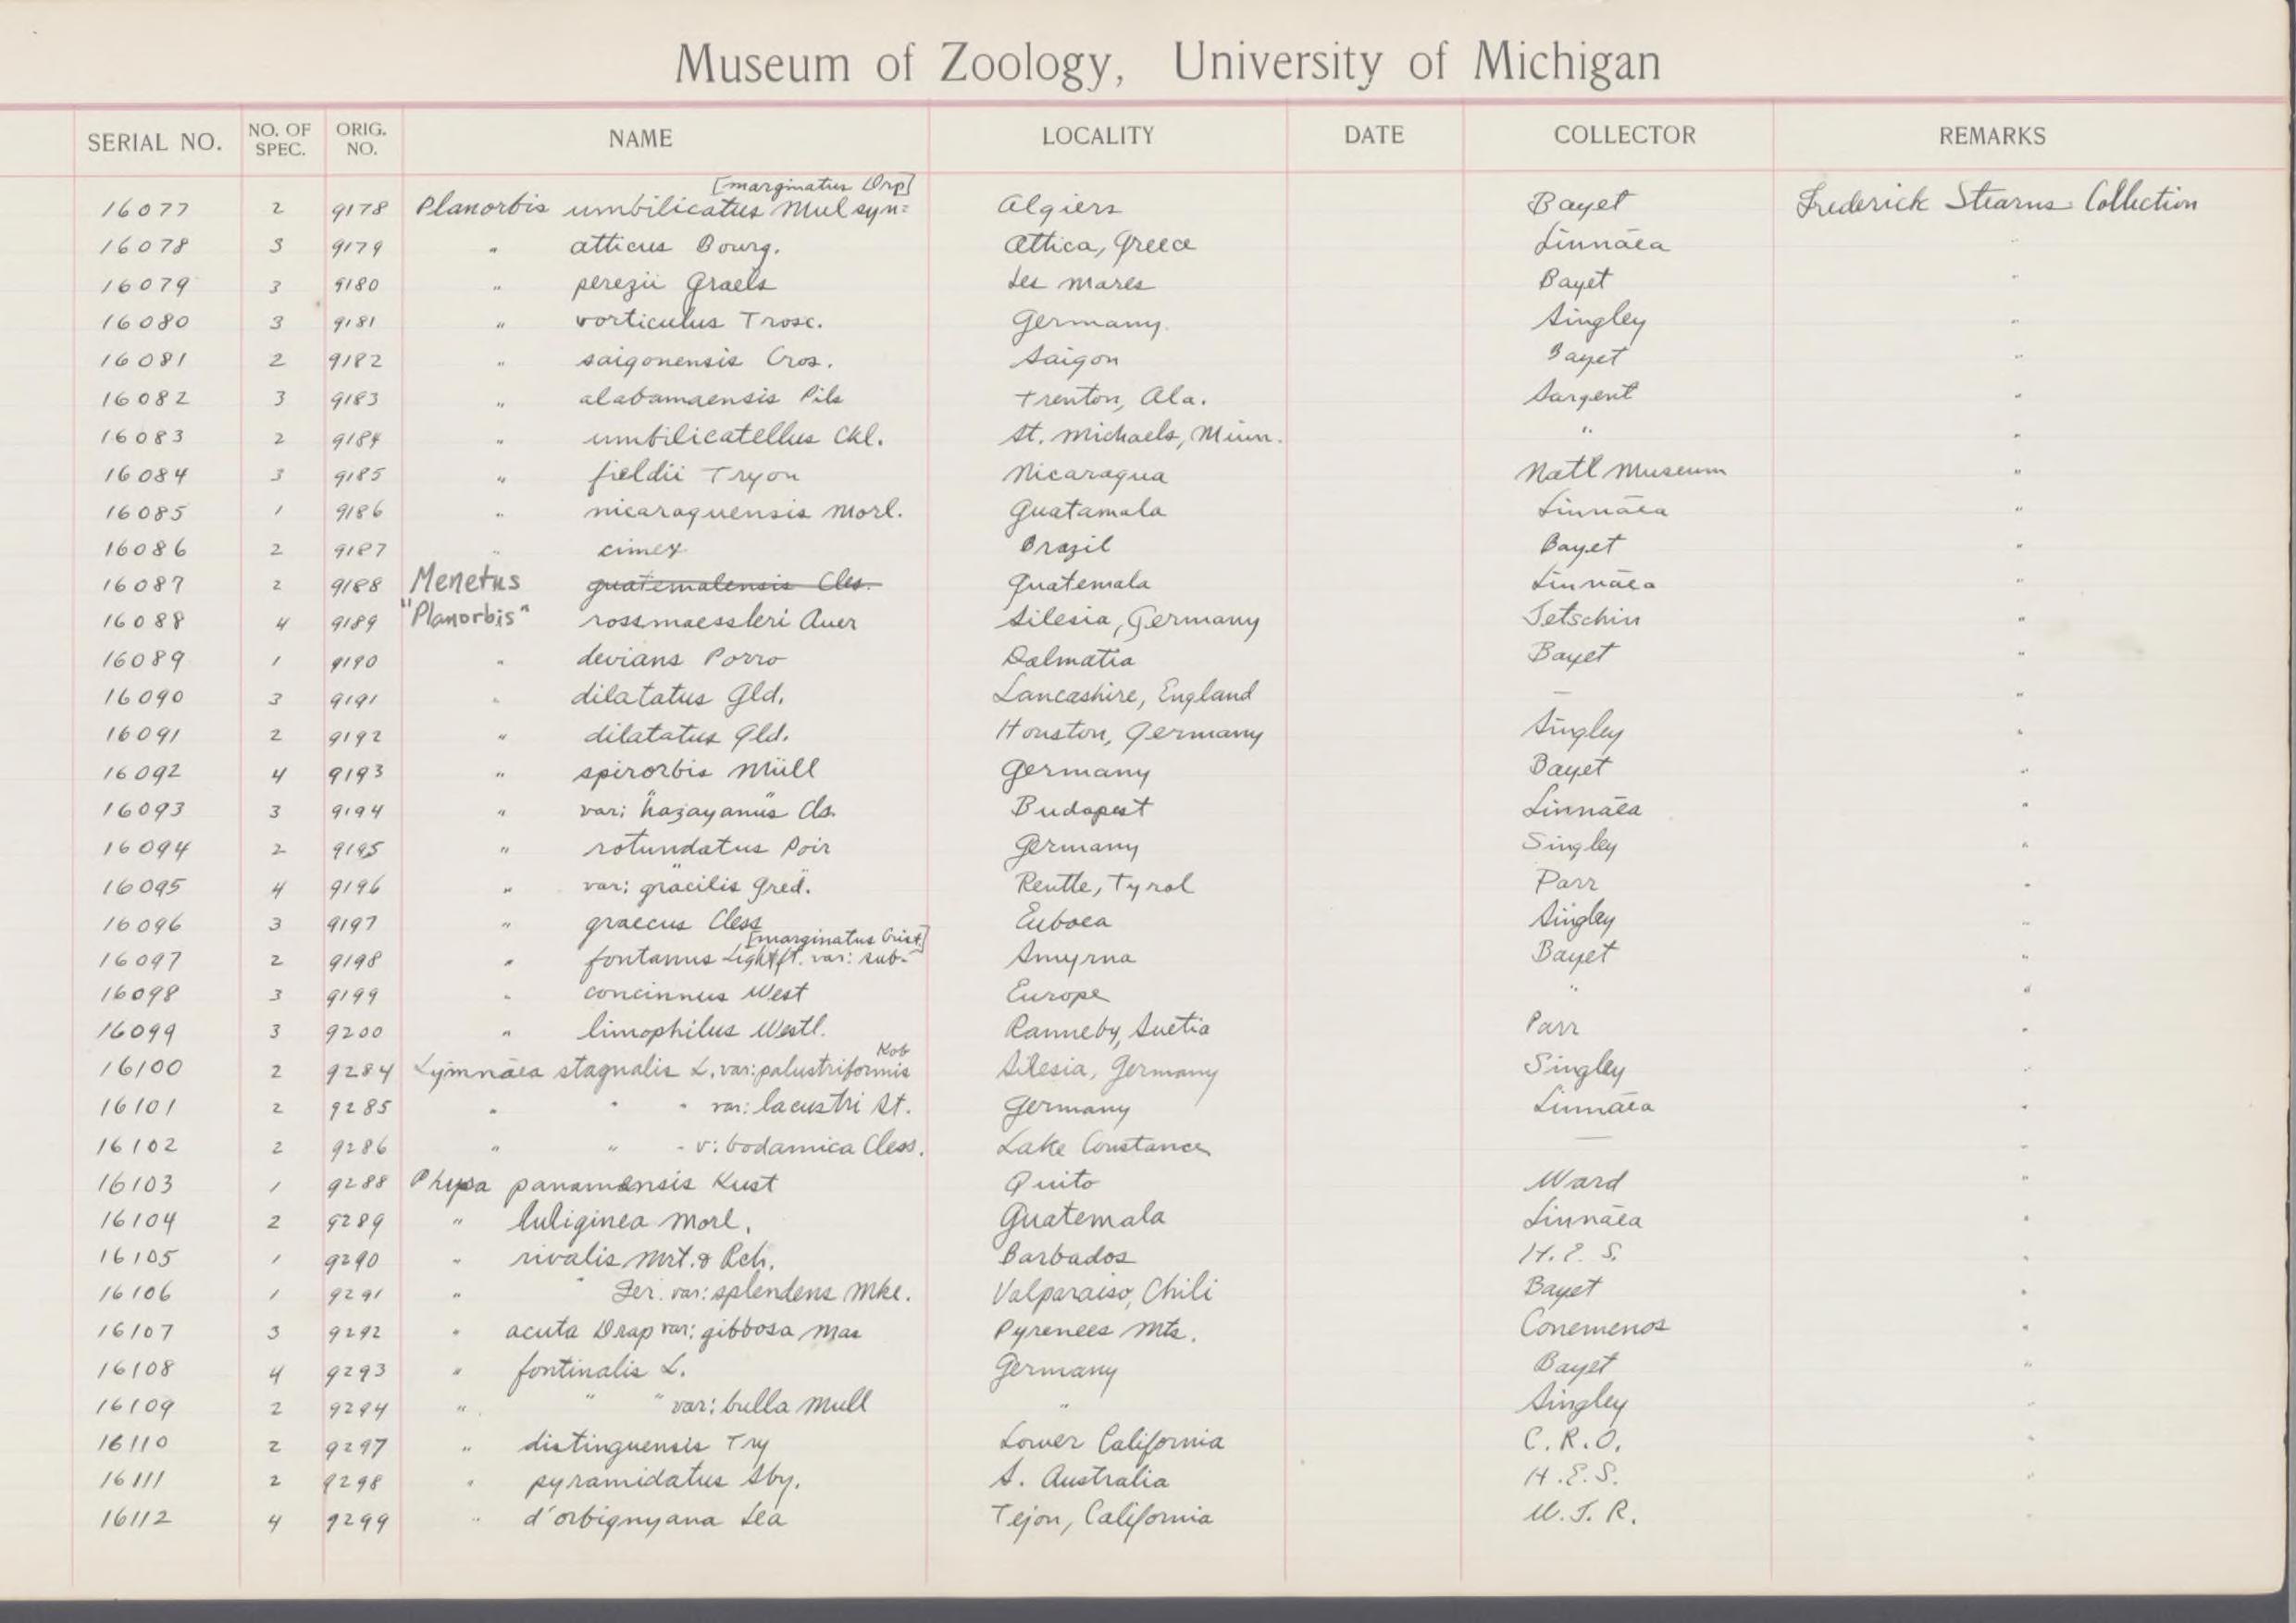 Museum of Zoology, University of Michigan
SERIAL NO. NO. OF SPEC. ORIG. NO. NAME LOCALITY DATE COLLECTOR REMARKS
[marginatus Drp]
16077 2 9178 Planorbis umbilicatus Mul syn= Algiers Bayet Frederick Stearns Collection
16078 3 9179 " atticus Bourg. Attica, Greece Linnāea "
16079 3 9180 " perezii Graels Les Mares Bayet "
16080 3 9181 " vorticulus Trosc. Germany. Singley "
16081 2 9182 " saigonensis Cros. Saigon Bayet "
16082 3 9183 " alabamaensis Pils Trenton, Ala. Sargent "
16083 2 9184 " umbilicatellus Ckl. St. Michaels, Minn. " "
16084 3 9185 " fieldii Tryon Nicaragua Natl Museum "
16085 1 9186 " nicaraguensis Morl. Guatamala Linnāea "
16086 2 9187 " cimex Brazil Bayet "
16087 2 9188 Menetus guatemalensis Cles. Guatemala Linnāea "
16088 4 9189 "Planorbis" rossmaessleri Auer Silesia, Germany Jetschin "
16089 1 9190 " devians Porro Dalmatia Bayet "
16090 3 9191 " dilatatus Gld. Lancashire, England — "
16091 2 9192 " dilatatus Gld. Houston, Germany Singley "
16092 4 9193 " spirorbis Müll Germany Bayet "
16093 3 9194 " var: "hazayanus" Cls. Budapest Linnāea "
16094 2 9195 " rotundatus Poir Germany Singley "
16095 4 9196 " var: gracilis Gred. Reutte, Tyrol Parr "
16096 3 9197 " graecus Cless Euboea Singley "
[marginatus Crist]
16097 2 9198 " fontanus Lightft. var: sub- Smyrna Bayet "
16098 3 9199 " concinnus West Europe " "
16099 3 9200 " limophilus Westl. Ranneby, Suetia Parr "
Kob
16100 2 9284 Lymnāea stagnalis L. var: palustriformis Silesia, Germany Singley "
16101 2 9285 " " " var: lacustri St. Germany Linnāea "
16102 2 9286 " " - v: bodamica Cless. Lake Constance — "
16103 1 9288 Physa panamensis Kust Quito Ward "
16104 2 9289 " luliginea Morl. Guatemala Linnāea "
16105 1 9290 " rivalis Mrt. & Rch. Barbados H.E.S. "
16106 1 9291 " " Fer. var: splendens Mke. Valparaiso, Chili Bayet "
16107 3 9292 " acuta Drap var: gibbosa Mas Pyrenees Mts. Conemenos "
16108 4 9293 " fontinalis L. Germany Bayet "
16109 2 9294 " " " var: bulla Mull " Singley "
16110 2 9297 " distinguensis Try Lower California C.R.O. "
16111 2 9298 " pyramidatus Sby. S. Australia H.E.S. "
16112 4 9299 " d'orbignyana Lea Tejon, California W.J.R. "